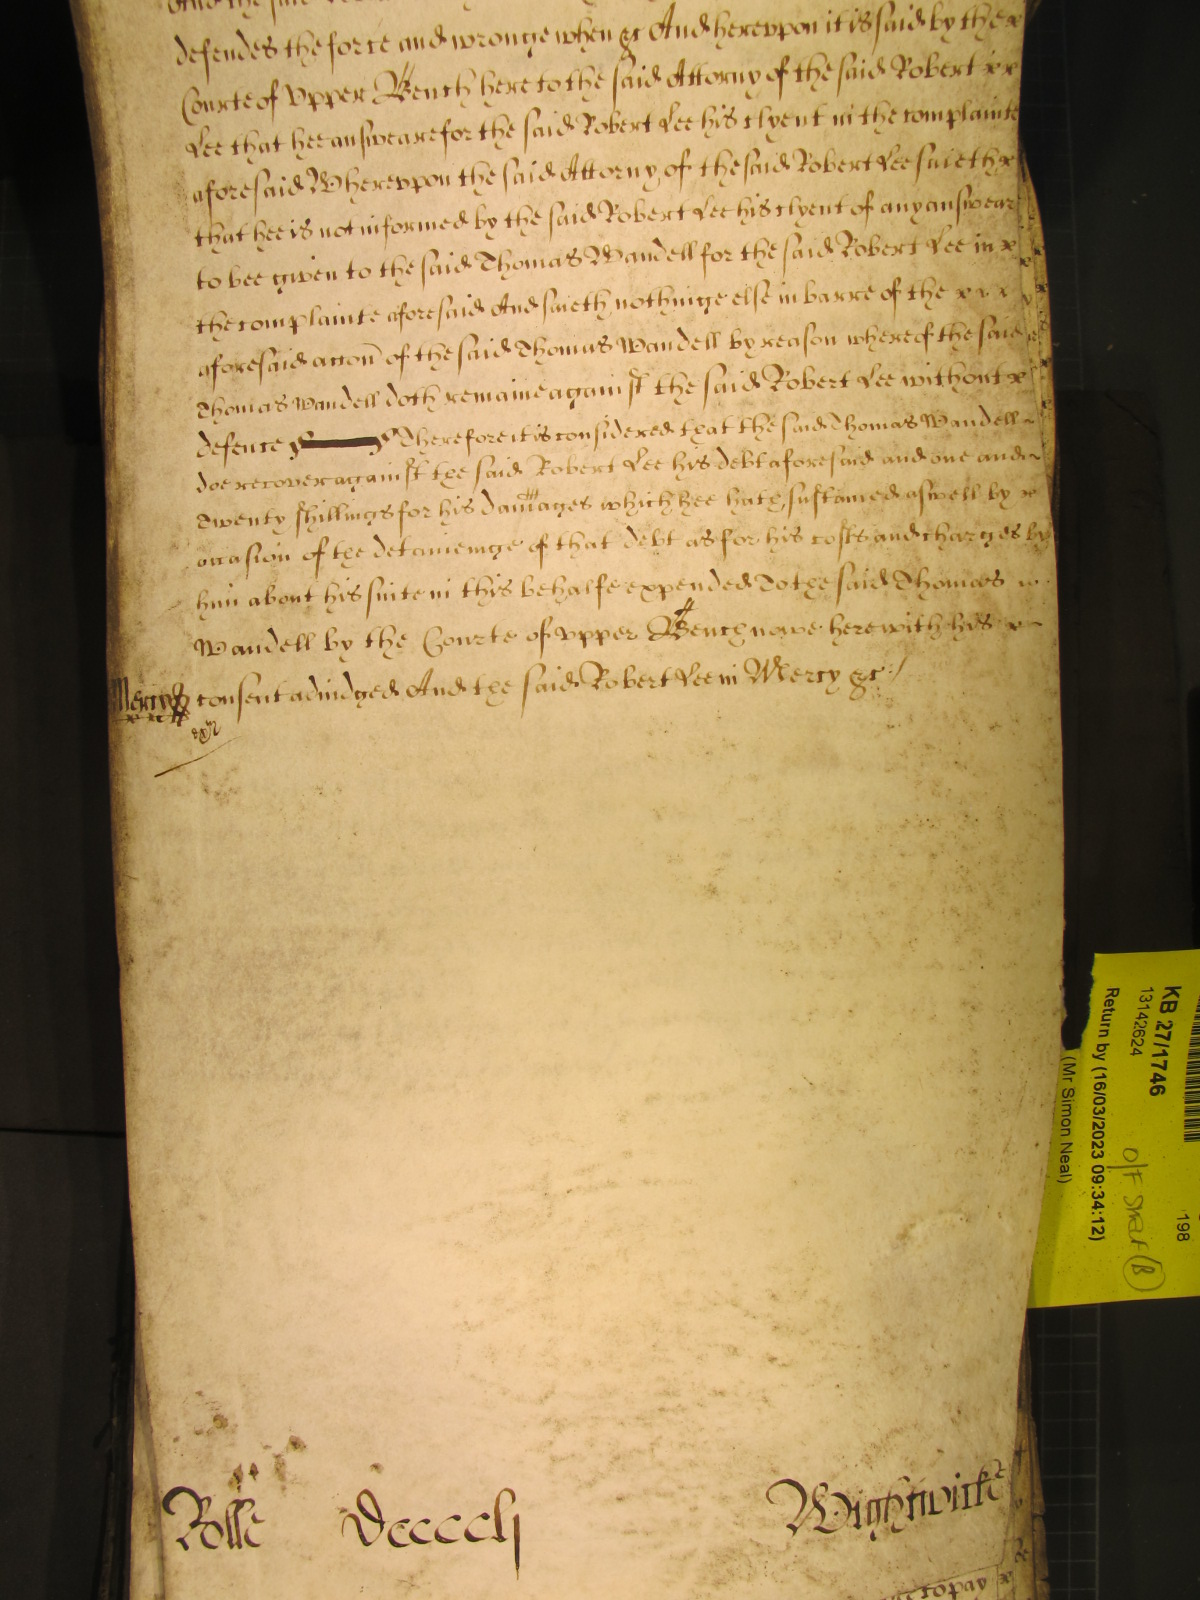 And the said
defendes the force and wronge when &c And herevpon it is said by the x
Courte of vpper Bench here to the said Attorny of the said Robert x x
Lee that hee answeare for the said Robert Lee his clyent in the complainte
aforesaid Wherevpon the said Attorny of the said Robert Lee saieth x
that hee is not informed by the said Robert Lee his clyent of any answear
to bee given to the said Thomas Wandell for the said Robert Lee in x
the complainte aforesaid And saieth nothinge else in barre of the x x x
aforesaid accon of the said Thomas Wandell by reason whereof the said
Thomas Wandell doth remaine against the said Robert Lee without x
defence Therefore it is considered that the said Thomas Wandell
doe recover against the said Robert Lee his debt aforesaid and one and
Twenty shillings for his damages which hee hath sustained aswell by x
occasion of the detaineinge of that debt as for his costs and charges by
him about his suite in this behalfe expended To the said Thomas
Wandell by the Courte of vpper Bench nowe here with his x
consent adiudged And the said Robert Lee in Mercy &c
Mercy
Rolle Dccccclj Wightwicke
to pay
KB 27/1746
13142624
Return by (16/03/2023 09:34:12)
(Mr Simon Neal)
198
O/F Start (B)